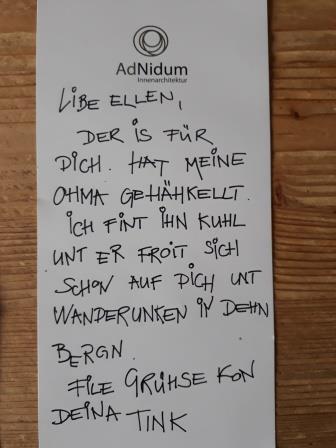 AdNidum
Innenarchitektur
LIBE ELLEN,
DER IS FÜR
DICH. HAT MEINE
OHMA GEHÄHKELLT.
ICH FINT IHN KUHL
UNT ER FROIT SICH
SCHON AUF DICH UNT
WANDERUNKEN IN DEHN
BERGN.
FILE GRÜHSE KON
DEINA TINK